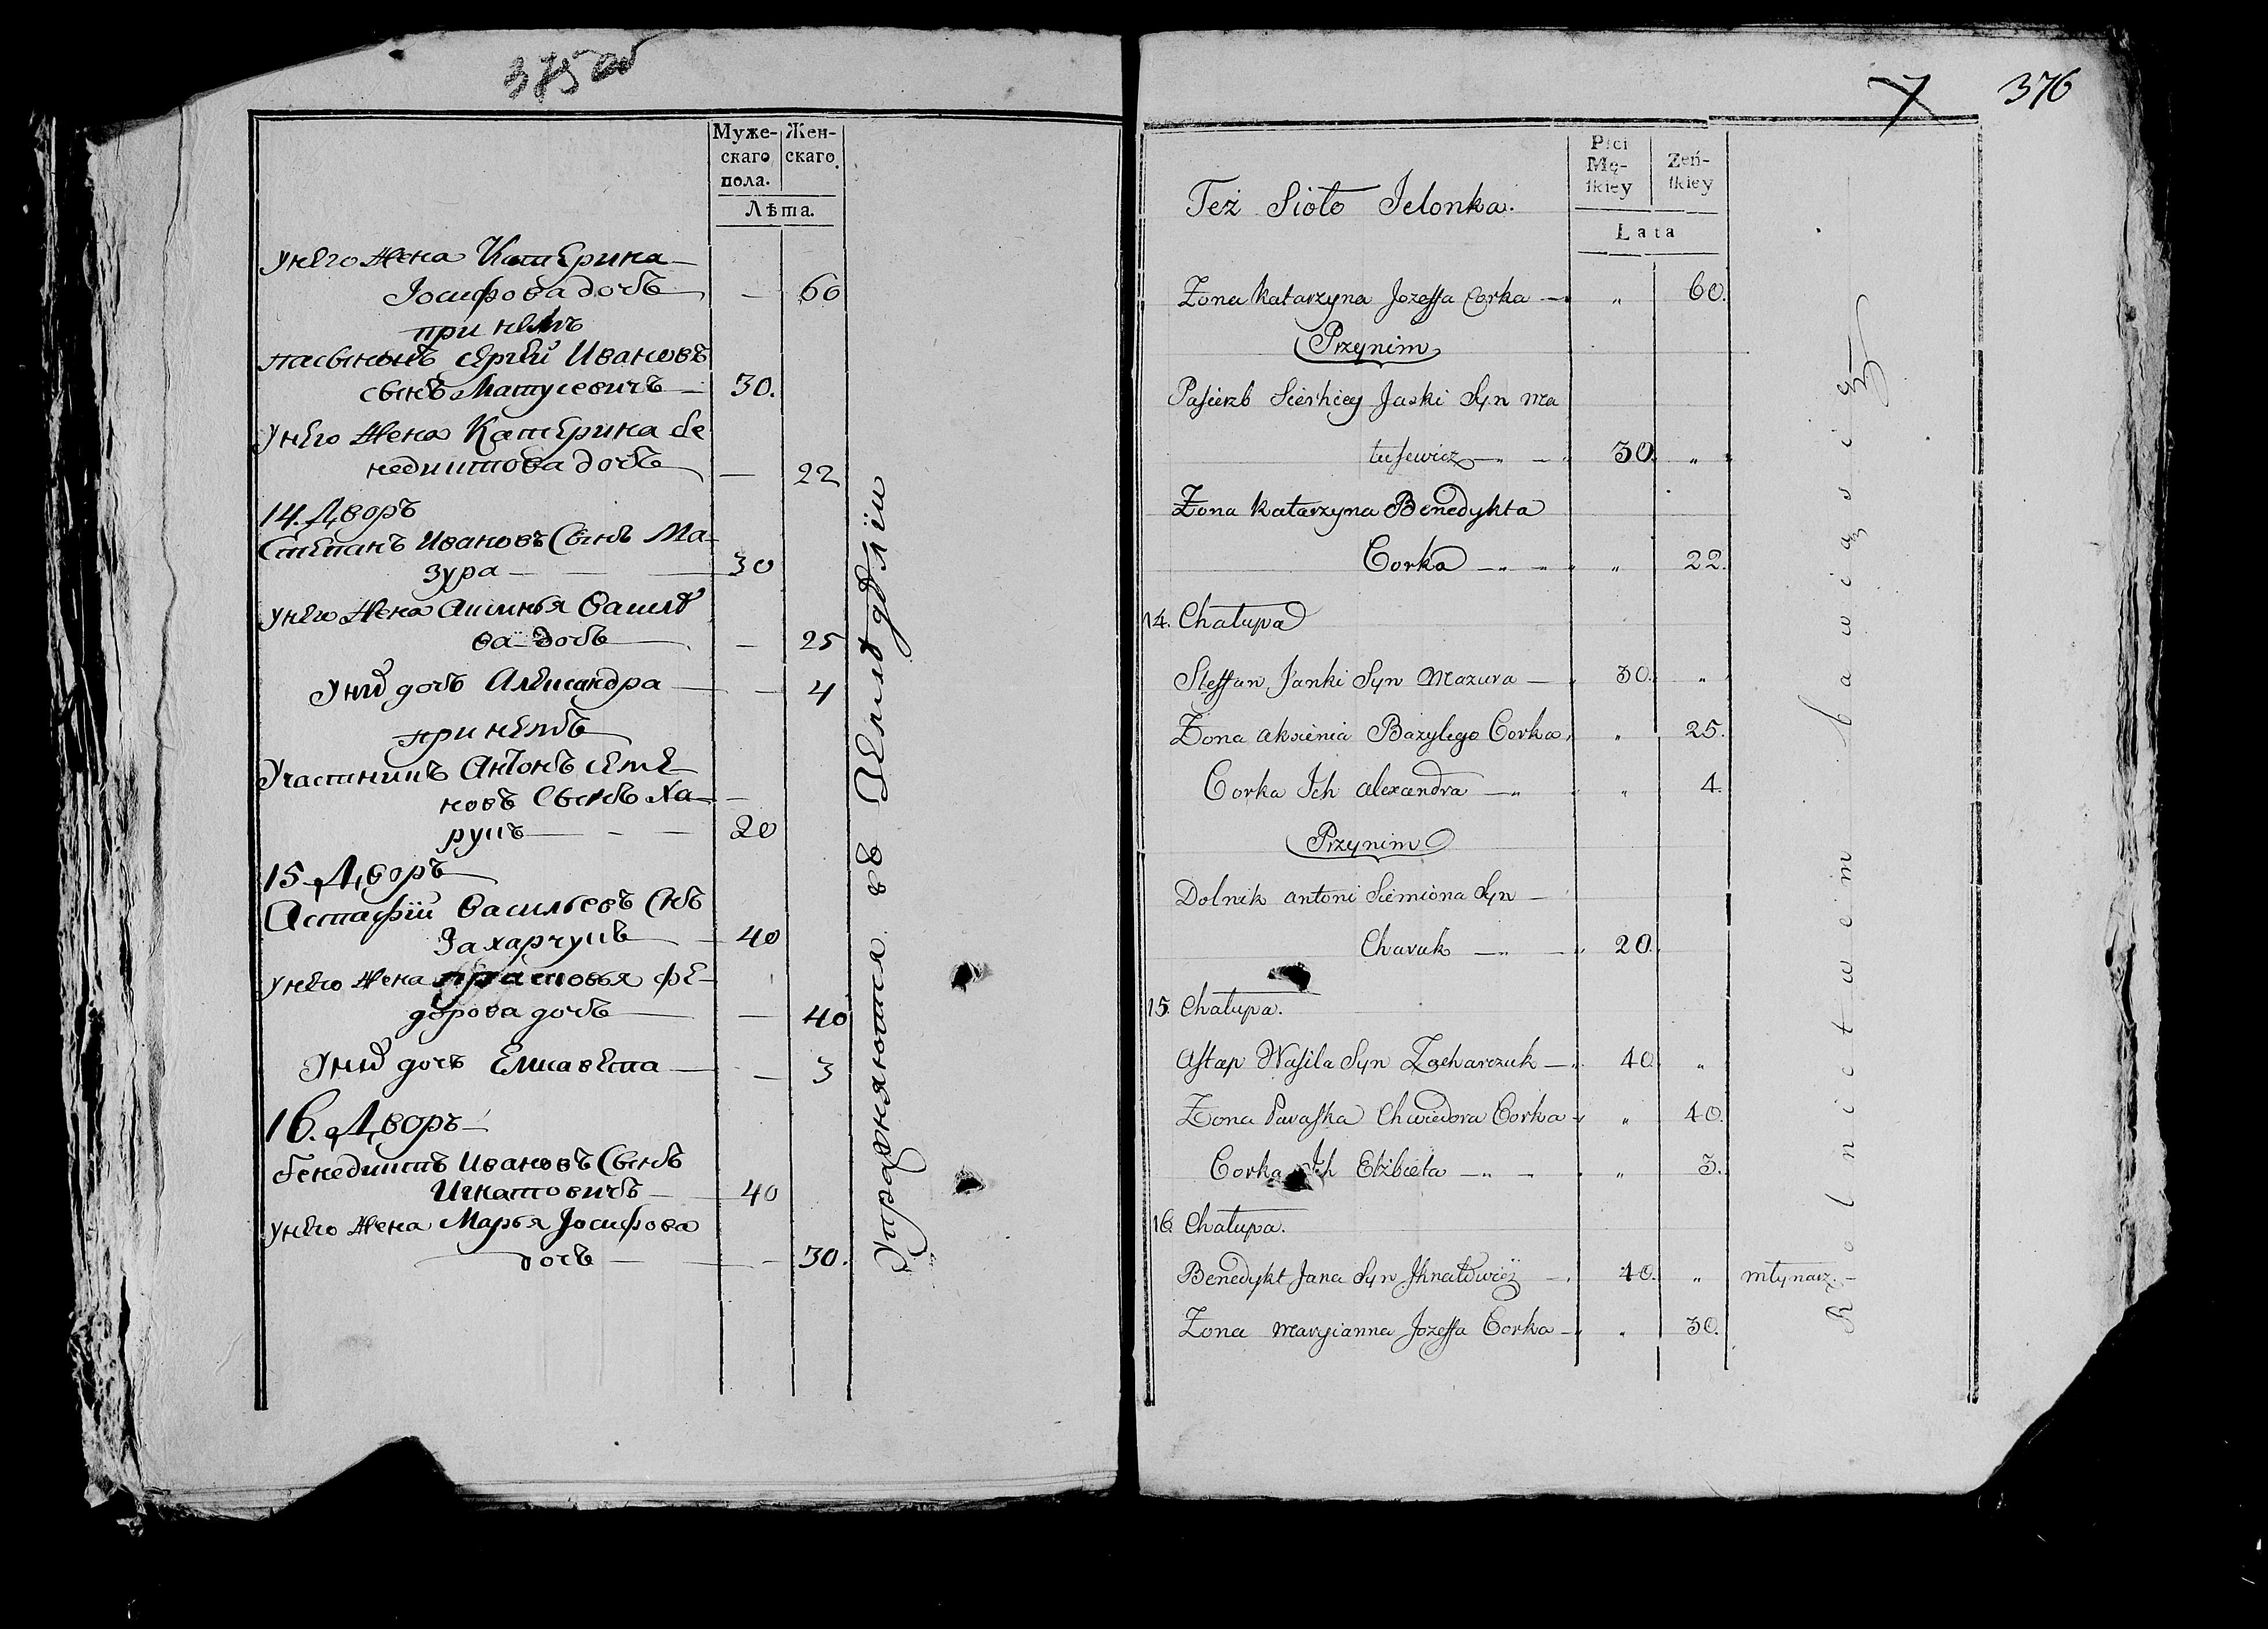 375 об
Муже-
скаго
пола.
Жен-
скаго.
Лѣта.
у него жена Катерина
Іосифова дочь — 60
при немъ
пасынокъ Сергѣй Ивановъ
сынъ Матусевичъ — 30.
у него жена Катерина Бе
недиктова дочь — 22
14. Дворъ
Степанъ Ивановъ Сынъ Ма-
зура — 30
у него жена Аксинья Васильѣ
ва дочь — 25
у нихъ дочь Александра — 4
при немъ
Участникъ Антонъ Семе
новъ Сынъ Ха-
рукъ — 20
15 Дворъ
Астафій Васильевъ Снъ
Захарчукъ — 40
у него жена Прасковья Фе-
дорова дочь — 40
у нихъ дочь Елисавета — 3
16. Дворъ
Бенедиктъ Ивановъ Сынъ
Игнатовичъ — 40
у него жена Марья Іосифова
дочь — 30.
Упражняются въ Земледѣліи
7 376
Płci
Mę-
ſkiey
Żeń-
ſkiey
Lata
Też Sioło Jelonka.
Zona Katarzyna Jozeffa Corka — „ 60.
Przynim
Pasierb Sierhiey Jaski Syn Ma
tusewicz — 30. „
Zona Katarzyna Benedykta
Corka — „ 22.
14. Chałupa
Steffan Janki Syn Mazura — 30. „
Zona Aksienia Bazylego Corka „ 25.
Corka Ich Alexandra — „ 4.
Przynim
Dolnik Antoni Siemiona Syn —
Charuk — 20.
15. Chałupa.
Astap Wasila Syn Zacharczuk — 40. „
Zona Paraska Chwiedora Corka „ 40.
Corka Ich Elżbieta — „ 3.
16. Chałupa.
Benedykt Jana Syn Ihnatowicz — 40. „ młynarz. —
Zona Maryianna Jozeffa Corka — „ 30.
Rolnictwem bawią się